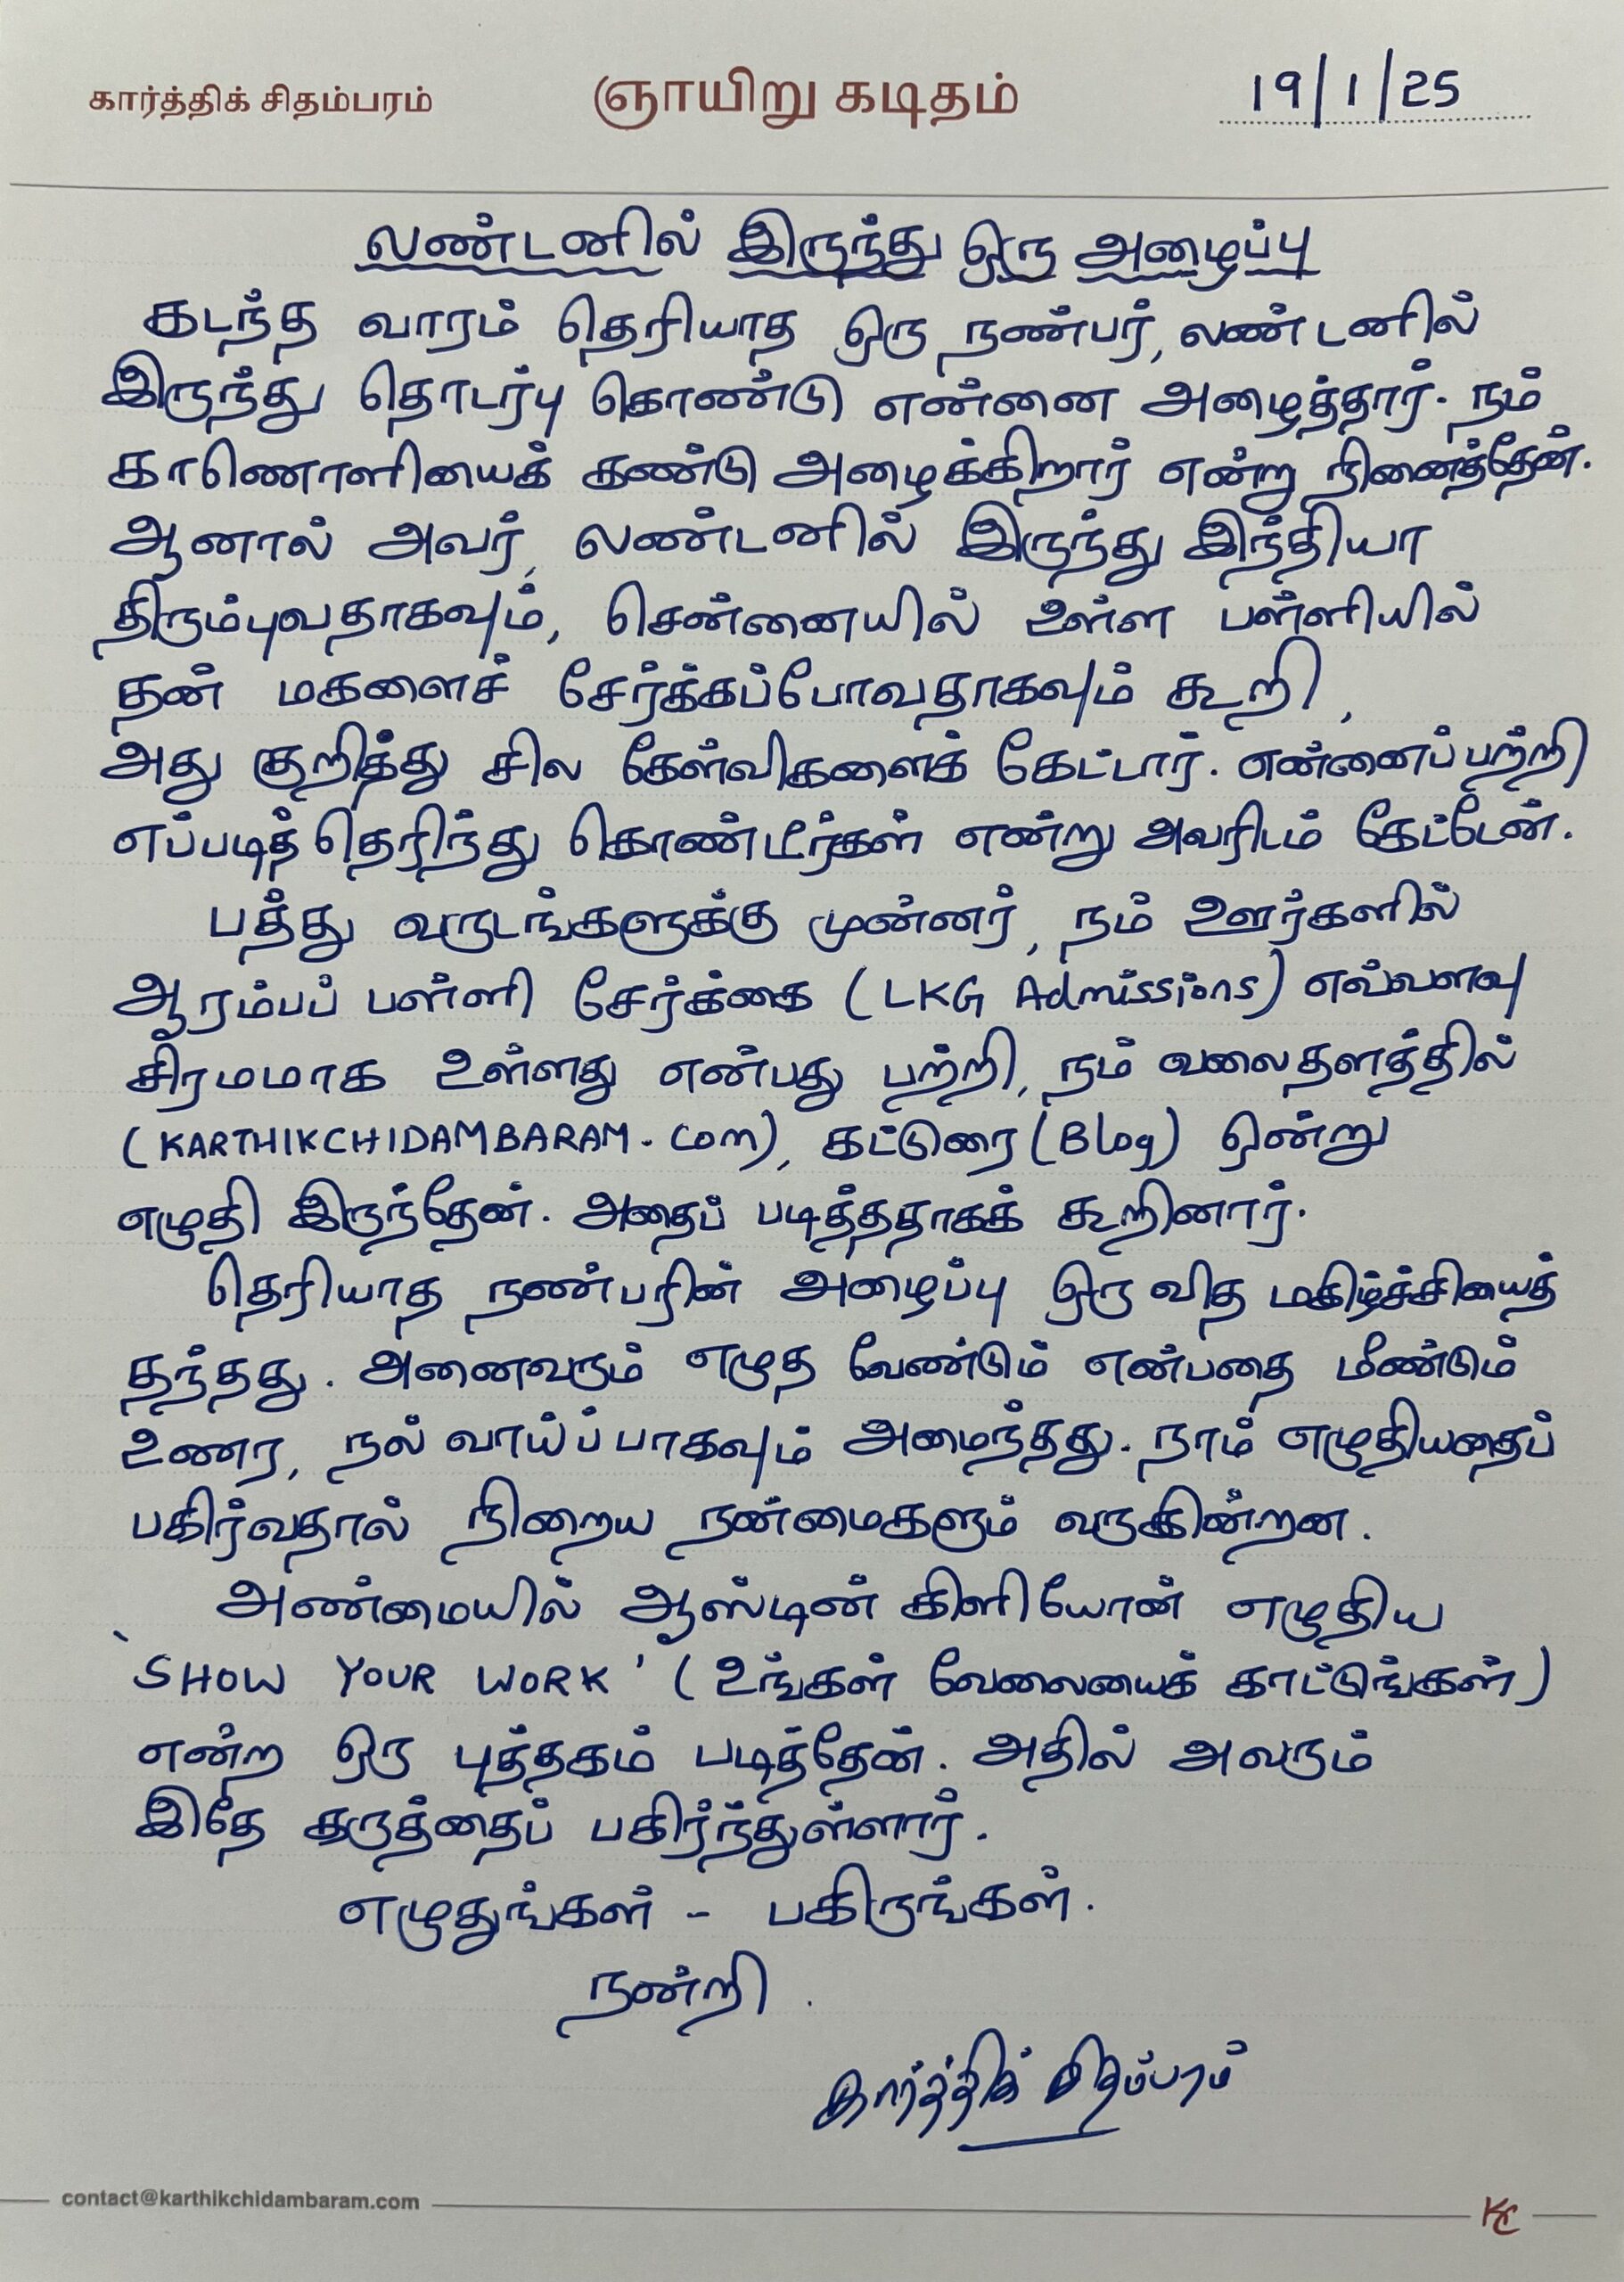 கார்த்திக் சிதம்பரம்
ஞாயிறு கடிதம்
19/1/25
லண்டனில் இருந்து ஒரு அழைப்பு
கடந்த வாரம் தெரியாத ஒரு நண்பர், லண்டனில்
இருந்து தொடர்பு கொண்டு என்னை அழைத்தார். நம்
காணொளியைக் கண்டு அழைக்கிறார் என்று நினைத்தேன்.
ஆனால் அவர், லண்டனில் இருந்து இந்தியா
திரும்புவதாகவும், சென்னையில் உள்ள பள்ளியில்
தன் மகளைச் சேர்க்கப்போவதாகவும் கூறி,
அது குறித்து சில கேள்விகளைக் கேட்டார். என்னைப்பற்றி
எப்படித் தெரிந்து கொண்டீர்கள் என்று அவரிடம் கேட்டேன்.
பத்து வருடங்களுக்கு முன்னர், நம் ஊர்களில்
ஆரம்பப் பள்ளி சேர்க்கை (LKG Admissions) எவ்வளவு
சிரமமாக உள்ளது என்பது பற்றி, நம் வலைதளத்தில்
(KARTHIKCHIDAMBARAM.Com), கட்டுரை (Blog) ஒன்று
எழுதி இருந்தேன். அதைப் படித்ததாகக் கூறினார்.
தெரியாத நண்பரின் அழைப்பு ஒரு வித மகிழ்ச்சியைத்
தந்தது. அனைவரும் எழுத வேண்டும் என்பதை மீண்டும்
உணர, நல் வாய்ப்பாகவும் அமைந்தது. நாம் எழுதியதைப்
பகிர்வதால் நிறைய நன்மைகளும் வருகின்றன.
அண்மையில் ஆஸ்டின் கிளியோன் எழுதிய
‘SHOW YOUR WORK’ (உங்கள் வேலையைக் காட்டுங்கள்)
என்ற ஒரு புத்தகம் படித்தேன். அதில் அவரும்
இதே கருத்தைப் பகிர்ந்துள்ளார்.
எழுதுங்கள் - பகிருங்கள்.
நன்றி.
கார்த்திக் சிதம்பரம்
contact@karthikchidambaram.com
KC